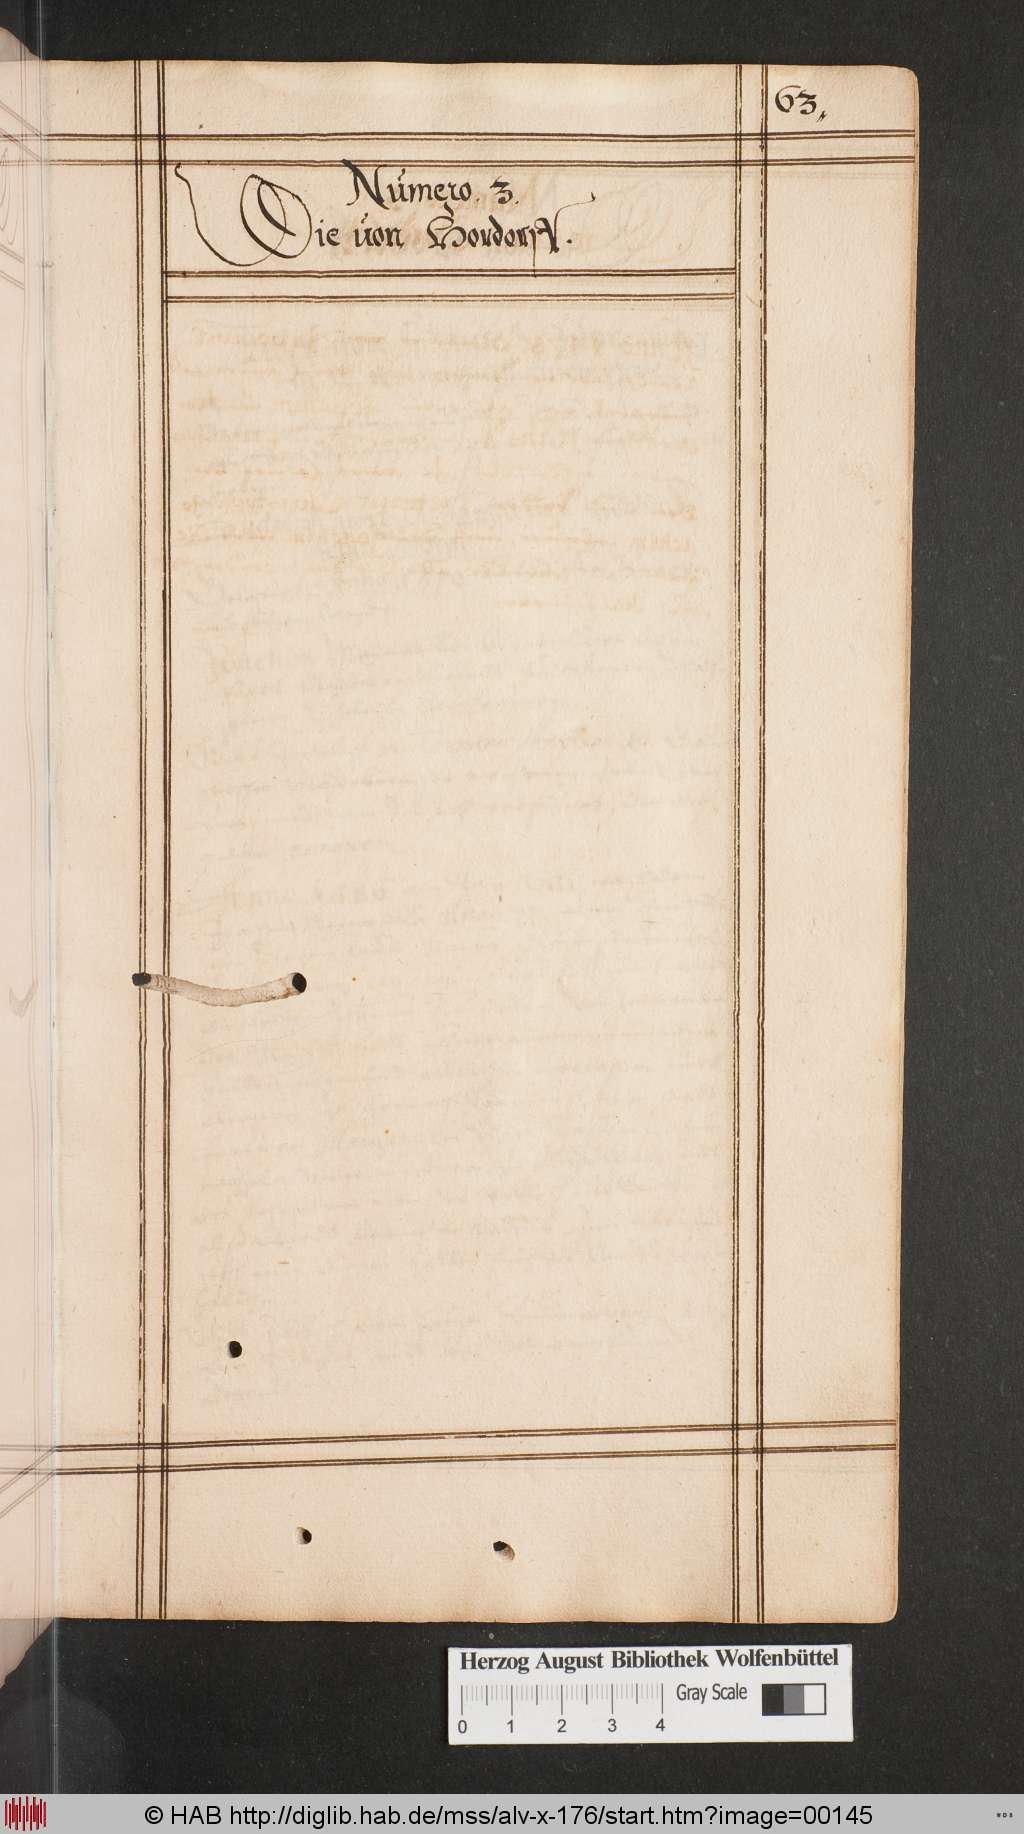 63.
Número. 3.
Die von Hordorff.
Herzog August Bibliothek Wolfenbüttel
Gray Scale
0 1 2 3 4
© HAB http://diglib.hab.de/mss/alv-x-176/start.htm?image=00145